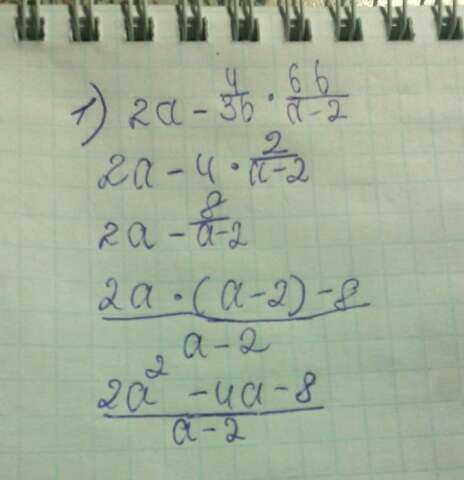 1) 2a - 4/3b · 6b/a-2
2a - 4 · 2/a-2
2a - 8/a-2
2a · (a-2) - 8 / a-2
2a² - 4a - 8 / a-2